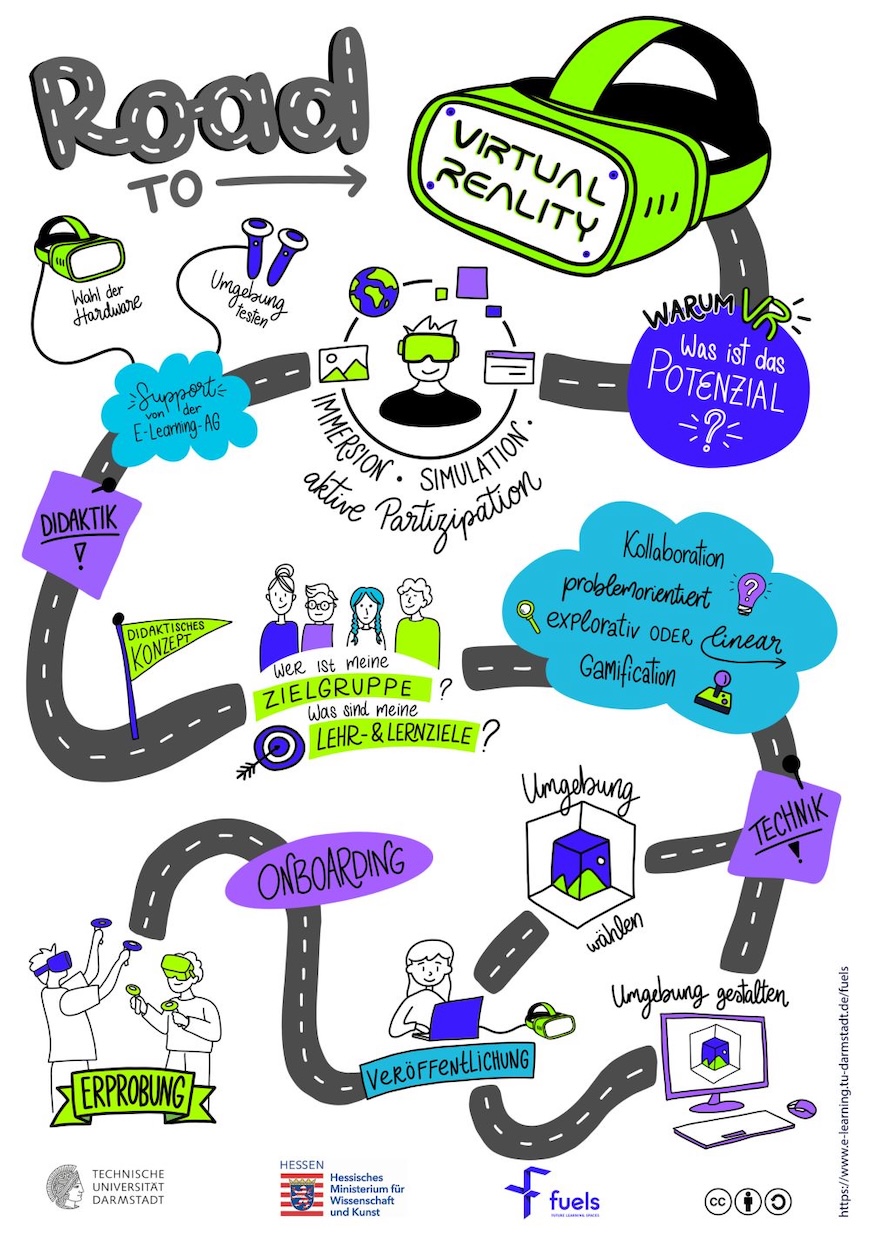 Road
TO
VIRTUAL
REALITY
WARUM VR
Was ist das
POTENZIAL
?
IMMERSION · SIMULATION ·
aktive Partizipation
Wahl der
Hardware
Umgebung
testen
Support
von der
E-Learning-AG
DIDAKTIK
!
DIDAKTISCHES
KONZEPT
WER IST MEINE
ZIELGRUPPE ?
WAS SIND MEINE
LEHR- & LERNZIELE ?
Kollaboration
problemorientiert
?
explorativ ODER linear
Gamification
TECHNIK
!
Umgebung
wählen
Umgebung gestalten
VERÖFFENTLICHUNG
ONBOARDING
ERPROBUNG
TECHNISCHE
UNIVERSITÄT
DARMSTADT
HESSEN
Hessisches
Ministerium für
Wissenschaft
und Kunst
fuels
FUTURE LEARNING SPACES
cc
https://www.e-learning.tu-darmstadt.de/fuels